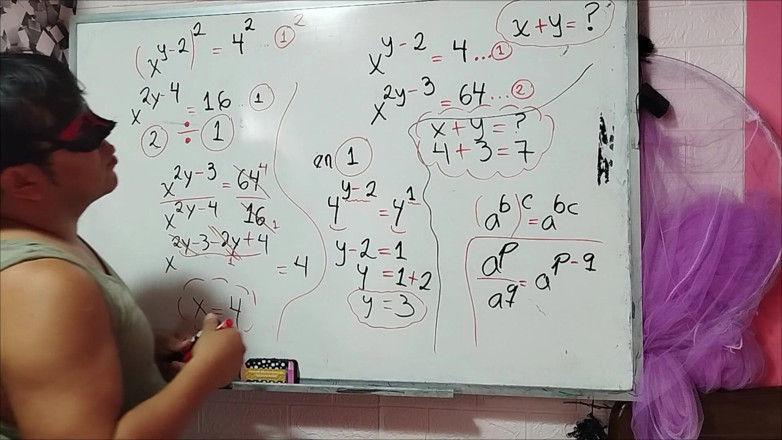 (x^(y-2))^2 = 4^2 ... ①^2
x^(2y-4) = 16 ... ①
② ÷ ①
x^(2y-3) = 64 4
x^(2y-4) 16 1
x^(2y-3-2y+4) = 4
1
x = 4
x^(y-2) = 4 ... ①
x^(2y-3) = 64 ... ②
x+y = ?
x+y = ?
4+3 = 7
en ①
4^(y-2) = 4^1
y-2 = 1
y = 1+2
y = 3
(a^b)^c = a^(bc)
a^p/a^q = a^(p-q)